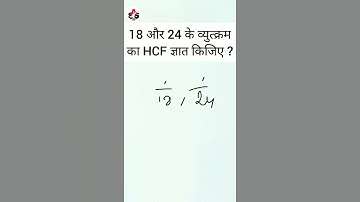 18 और 24 के व्युत्क्रम
का HCF ज्ञात किजिए ?
1/18 , 1/24